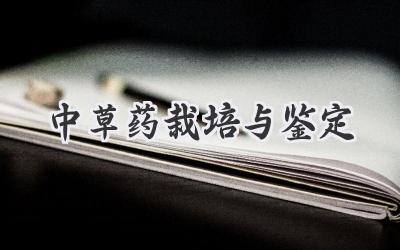 中草药栽培与鉴定